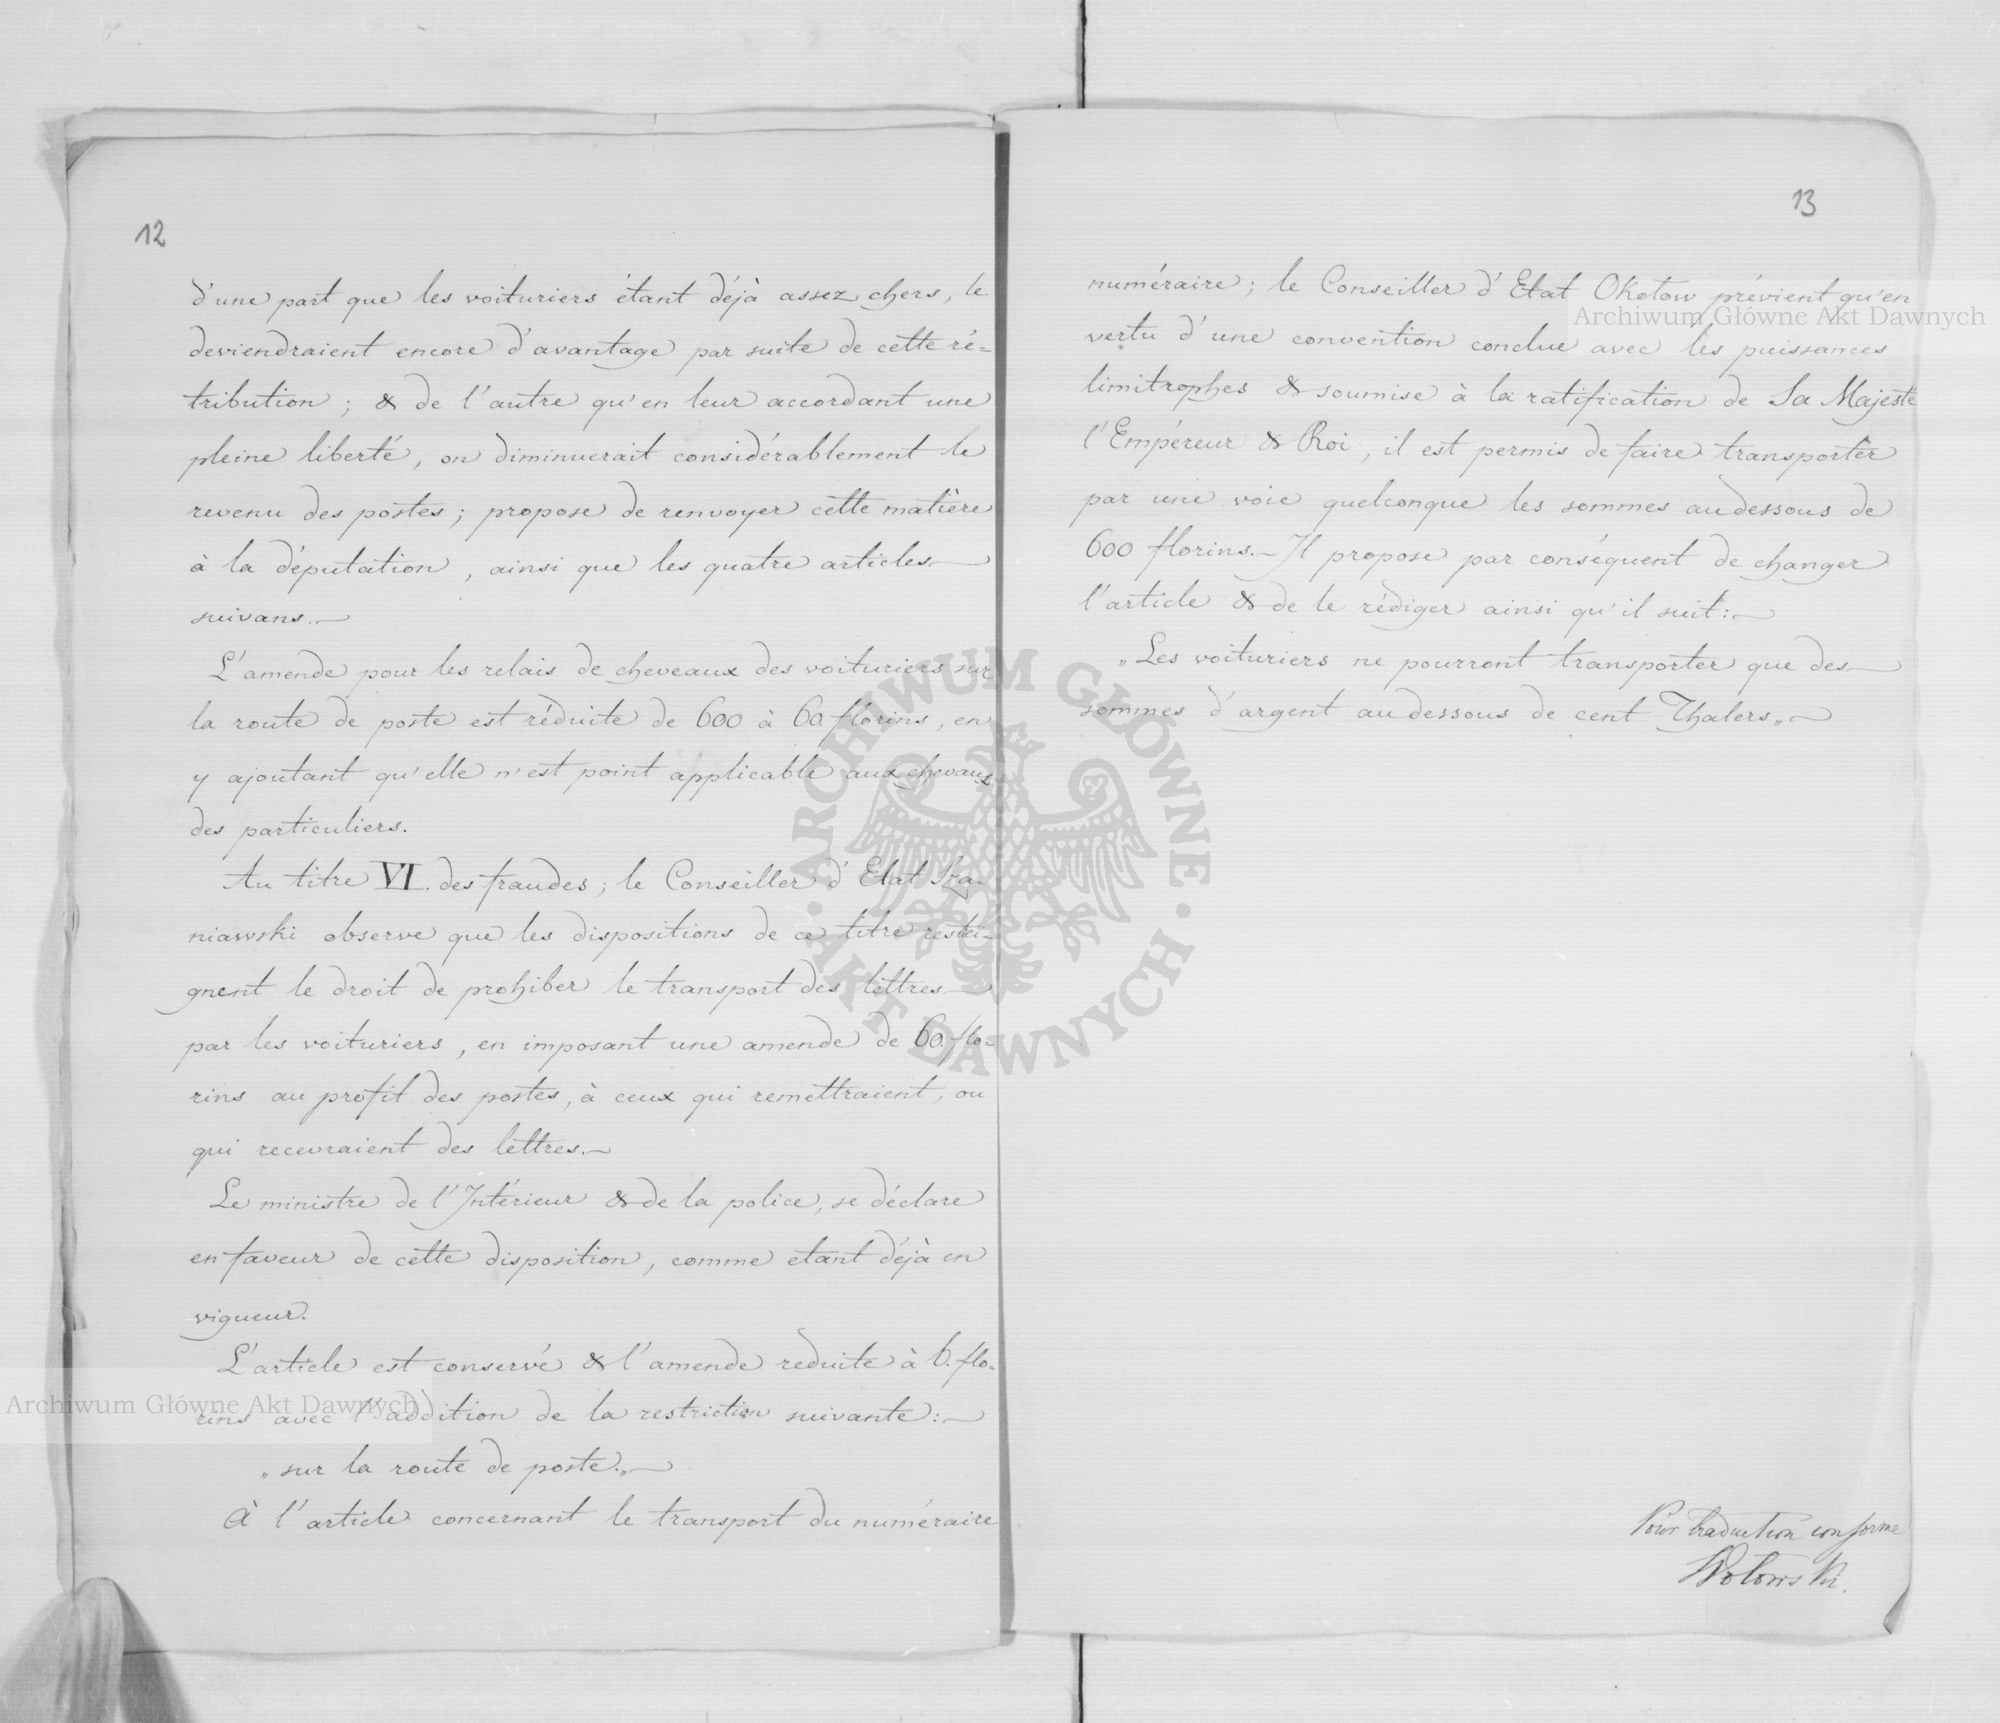 12
d'une part que les voituriers étant déjà assez chers, le
deviendraient encore d'avantage par suite de cette ré=
tribution ; & de l'autre qu'en leur accordant une
pleine liberté, on diminuerait considérablement le
revenu des postes ; propose de renvoyer cette matière
à la députation, ainsi que les quatre articles
suivans.—
L'amende pour les relais de cheveaux des voituriers sur
la route de poste est réduite de 600 à 60. florins, en
y ajoutant qu'elle n'est point applicable aux chevaux
des particuliers.
Au titre VI. des fraudes ; le Conseiller d'Etat Sza-
niawski observe que les dispositions de ce titre restei-
gnent le droit de prohiber le transport des lettres
par les voituriers, en imposant une amende de 60. flo=
rins au profit des postes, à ceux qui remettraient, ou
qui recevraient des lettres.—
Le ministre de l'Intérieur & de la police, se déclare
en faveur de cette disposition, comme etant déjà en
vigueur.
L'article est conservé & l'amende reduite à 6. flo=
rins avec l'addition de la restriction suivante :—
„sur la route de poste.„—
À l'article concernant le transport du numéraire
13
numéraire ; le Conseiller d'Etat Okotow prévient qu'en
vertu d'une convention conclue avec les puissances
limitrophes & soumise à la ratification de Sa Majesté
l'Empéreur & Roi, il est permis de faire transporter
par une voie quelconque les sommes au dessous de
600 florins.— Il propose par conséquent de changer
l'article & de le rédiger ainsi qu'il suit :—
„Les voituriers ne pourront transporter que des
sommes d'argent au dessous de cent Thalers„—
Pour traduction conforme
Wolowski.
Archiwum Główne Akt Dawnych
Archiwum Główne Akt Dawnych
ARCHIWUM GŁÓWNE · AKT DAWNYCH ·